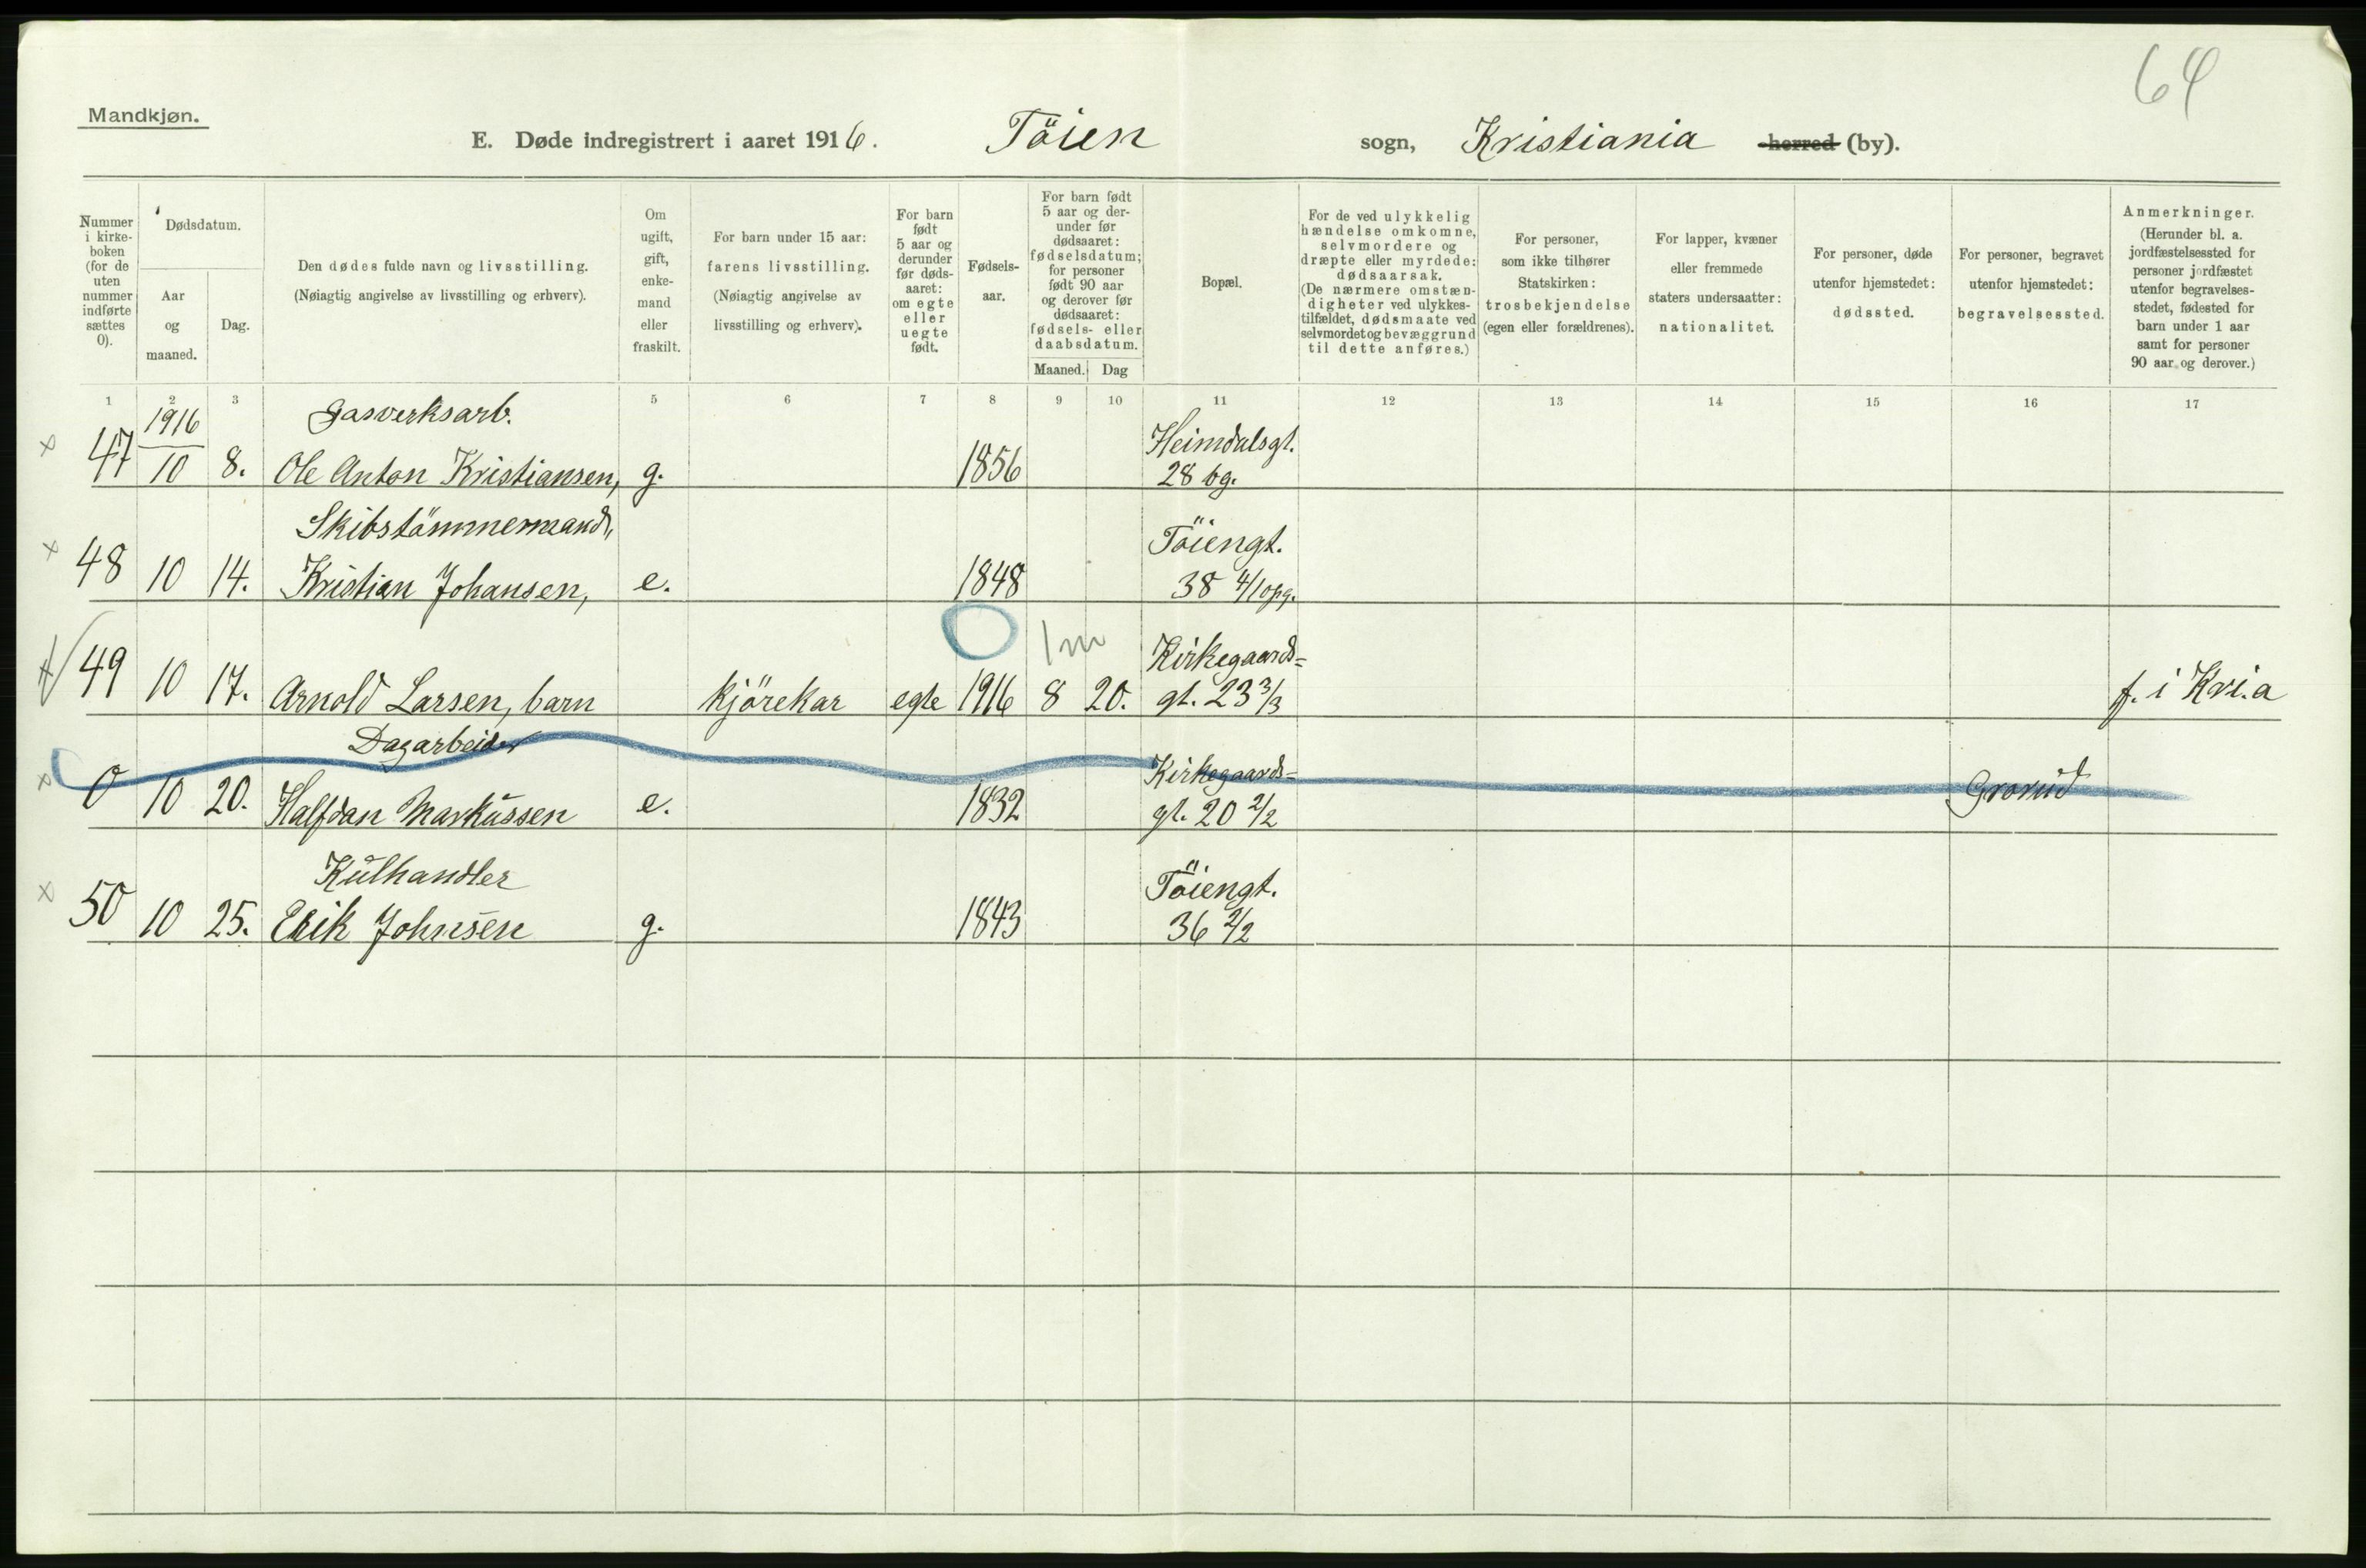 64
Mandkjøn.
E. Døde indregistrert i aaret 1916. Töien sogn, Kristiania herred (by).
Nummer i kirke-boken (for de uten nummer indførte sættes 0).
Dødsdatum.
Aar og maaned.
Dag.
Den dødes fulde navn og livsstilling.
(Nøiagtig angivelse av livsstilling og erhverv).
Om ugift, gift, enke-mand eller fraskilt.
For barn under 15 aar: farens livsstilling.
(Nøiagtig angivelse av livsstilling og erhverv).
For barn født 5 aar og derunder før døds-aaret: om egte eller uegte født.
Fødsels-aar.
For barn født 5 aar og der-under før dødsaaret: fødselsdatum; for personer født 90 aar og derover før dødsaaret: fødsels- eller daabsdatum.
Maaned. Dag
Bopæl.
For de ved ulykkelig hændelse omkomne, selvmordere og dræpte eller myrdede: dødsaarsak.
(De nærmere omstæn-digheter ved ulykkes-tilfældet, dødsmaate ved selvmordet og bevæggrund til dette anføres.)
For personer, som ikke tilhører Statskirken: trosbekjendelse (egen eller forældrenes).
For lapper, kvæner eller fremmede staters undersaatter: nationalitet.
For personer, døde utenfor hjemstedet: dødssted.
For personer, begravet utenfor hjemstedet: begravelsessted.
Anmerkninger.
(Herunder bl. a. jordfæstelsessted for personer jordfæstet utenfor begravelses-stedet, fødested for barn under 1 aar samt for personer 90 aar og derover.)
1 2 3 5 6 7 8 9 10 11 12 13 14 15 16 17
1916 Gasverksarb. Heimdalsgt.
× 47 10 8. Ole Anton Kristiansen, g. 1856 28 bg.
Skibstömmermand, Töiengt.
× 48 10 14. Kristian Johansen, e. 1848 38 4/1 opg.
0 1 m Kirkegaards=
× 49 10 17. Arnold Larsen, barn kjörekar egte 1916 8 20. gt. 23 3/3 f. i Kri.a
Dagarbeider Kirkegaards=
× 0 10 20. Halfdan Markussen e. 1832 gt. 20 2/2 Grorud
Kulhandler Töiengt.
× 50 10 25. Erik Johnsen g. 1843 36 2/2